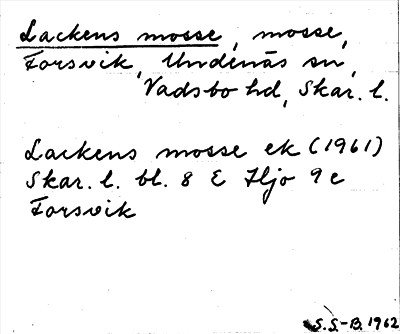 Lackens mosse, mosse,
Forsvik, Undenäs sn,
Vadsbo hd, Skar. l.
Lackens mosse ek (1961)
Skar. l. bl. 8 E Hjo 9 e
Forsvik
S.S.-B. 1962